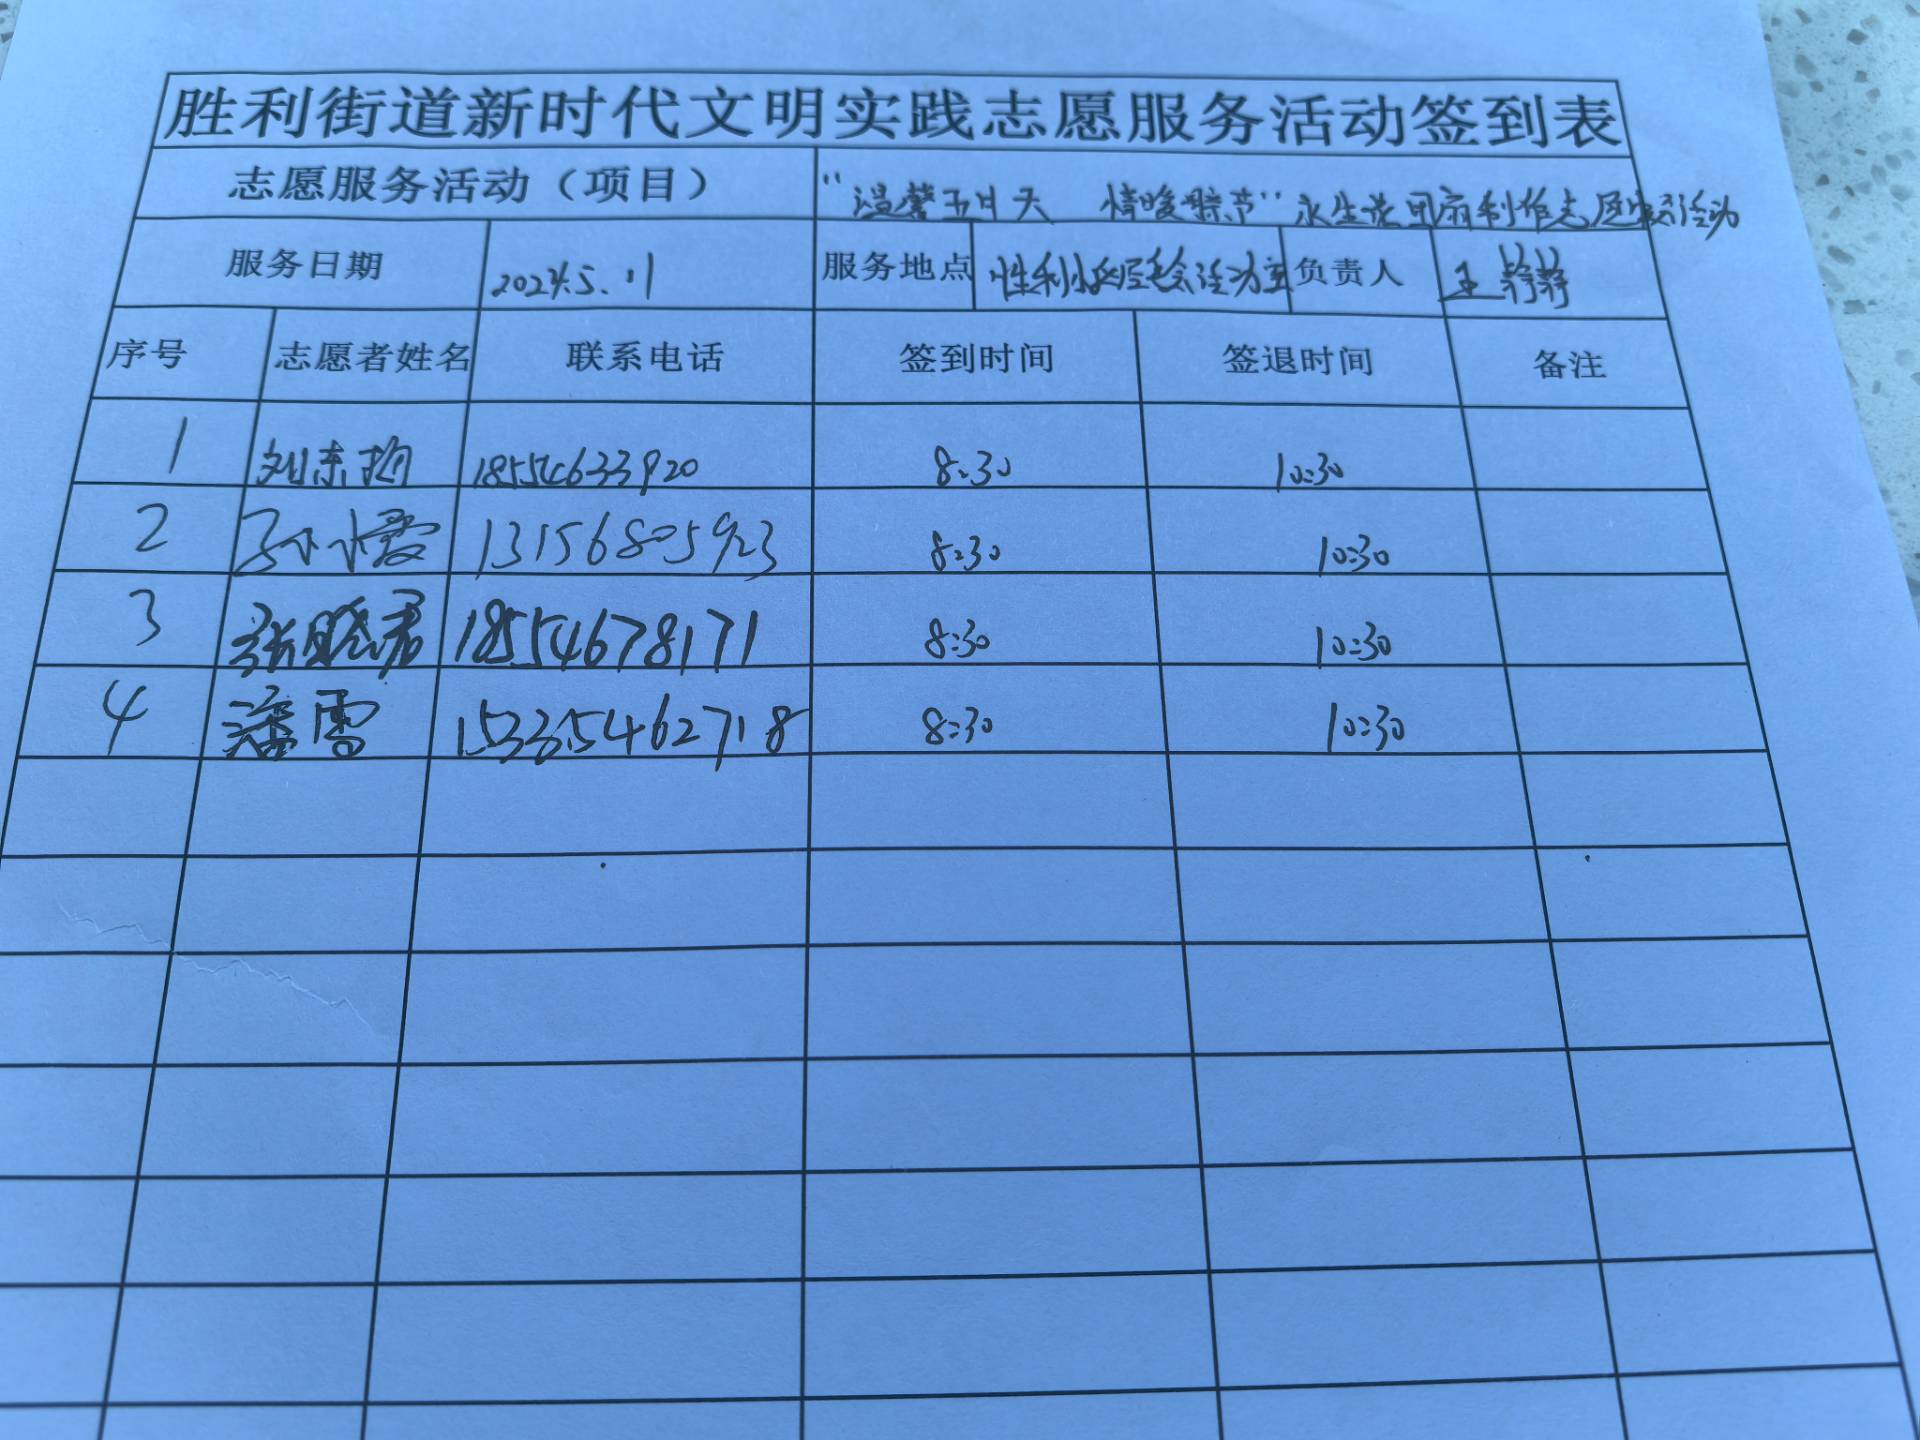 胜利街道新时代文明实践志愿服务活动签到表
志愿服务活动（项目） “温馨五月天 情暖母亲节”永生花团扇制作志愿服务活动
服务日期 2024.5.11 服务地点 胜利社区居委会活动室 负责人 王静静
序号 志愿者姓名 联系电话 签到时间 签退时间 备注
1 刘东 18554633920 8:30 10:30
2 孙小霞 13156805923 8:30 10:30
3 张晓君 18554678171 8:30 10:30
4 潘雪 15335462718 8:30 10:30